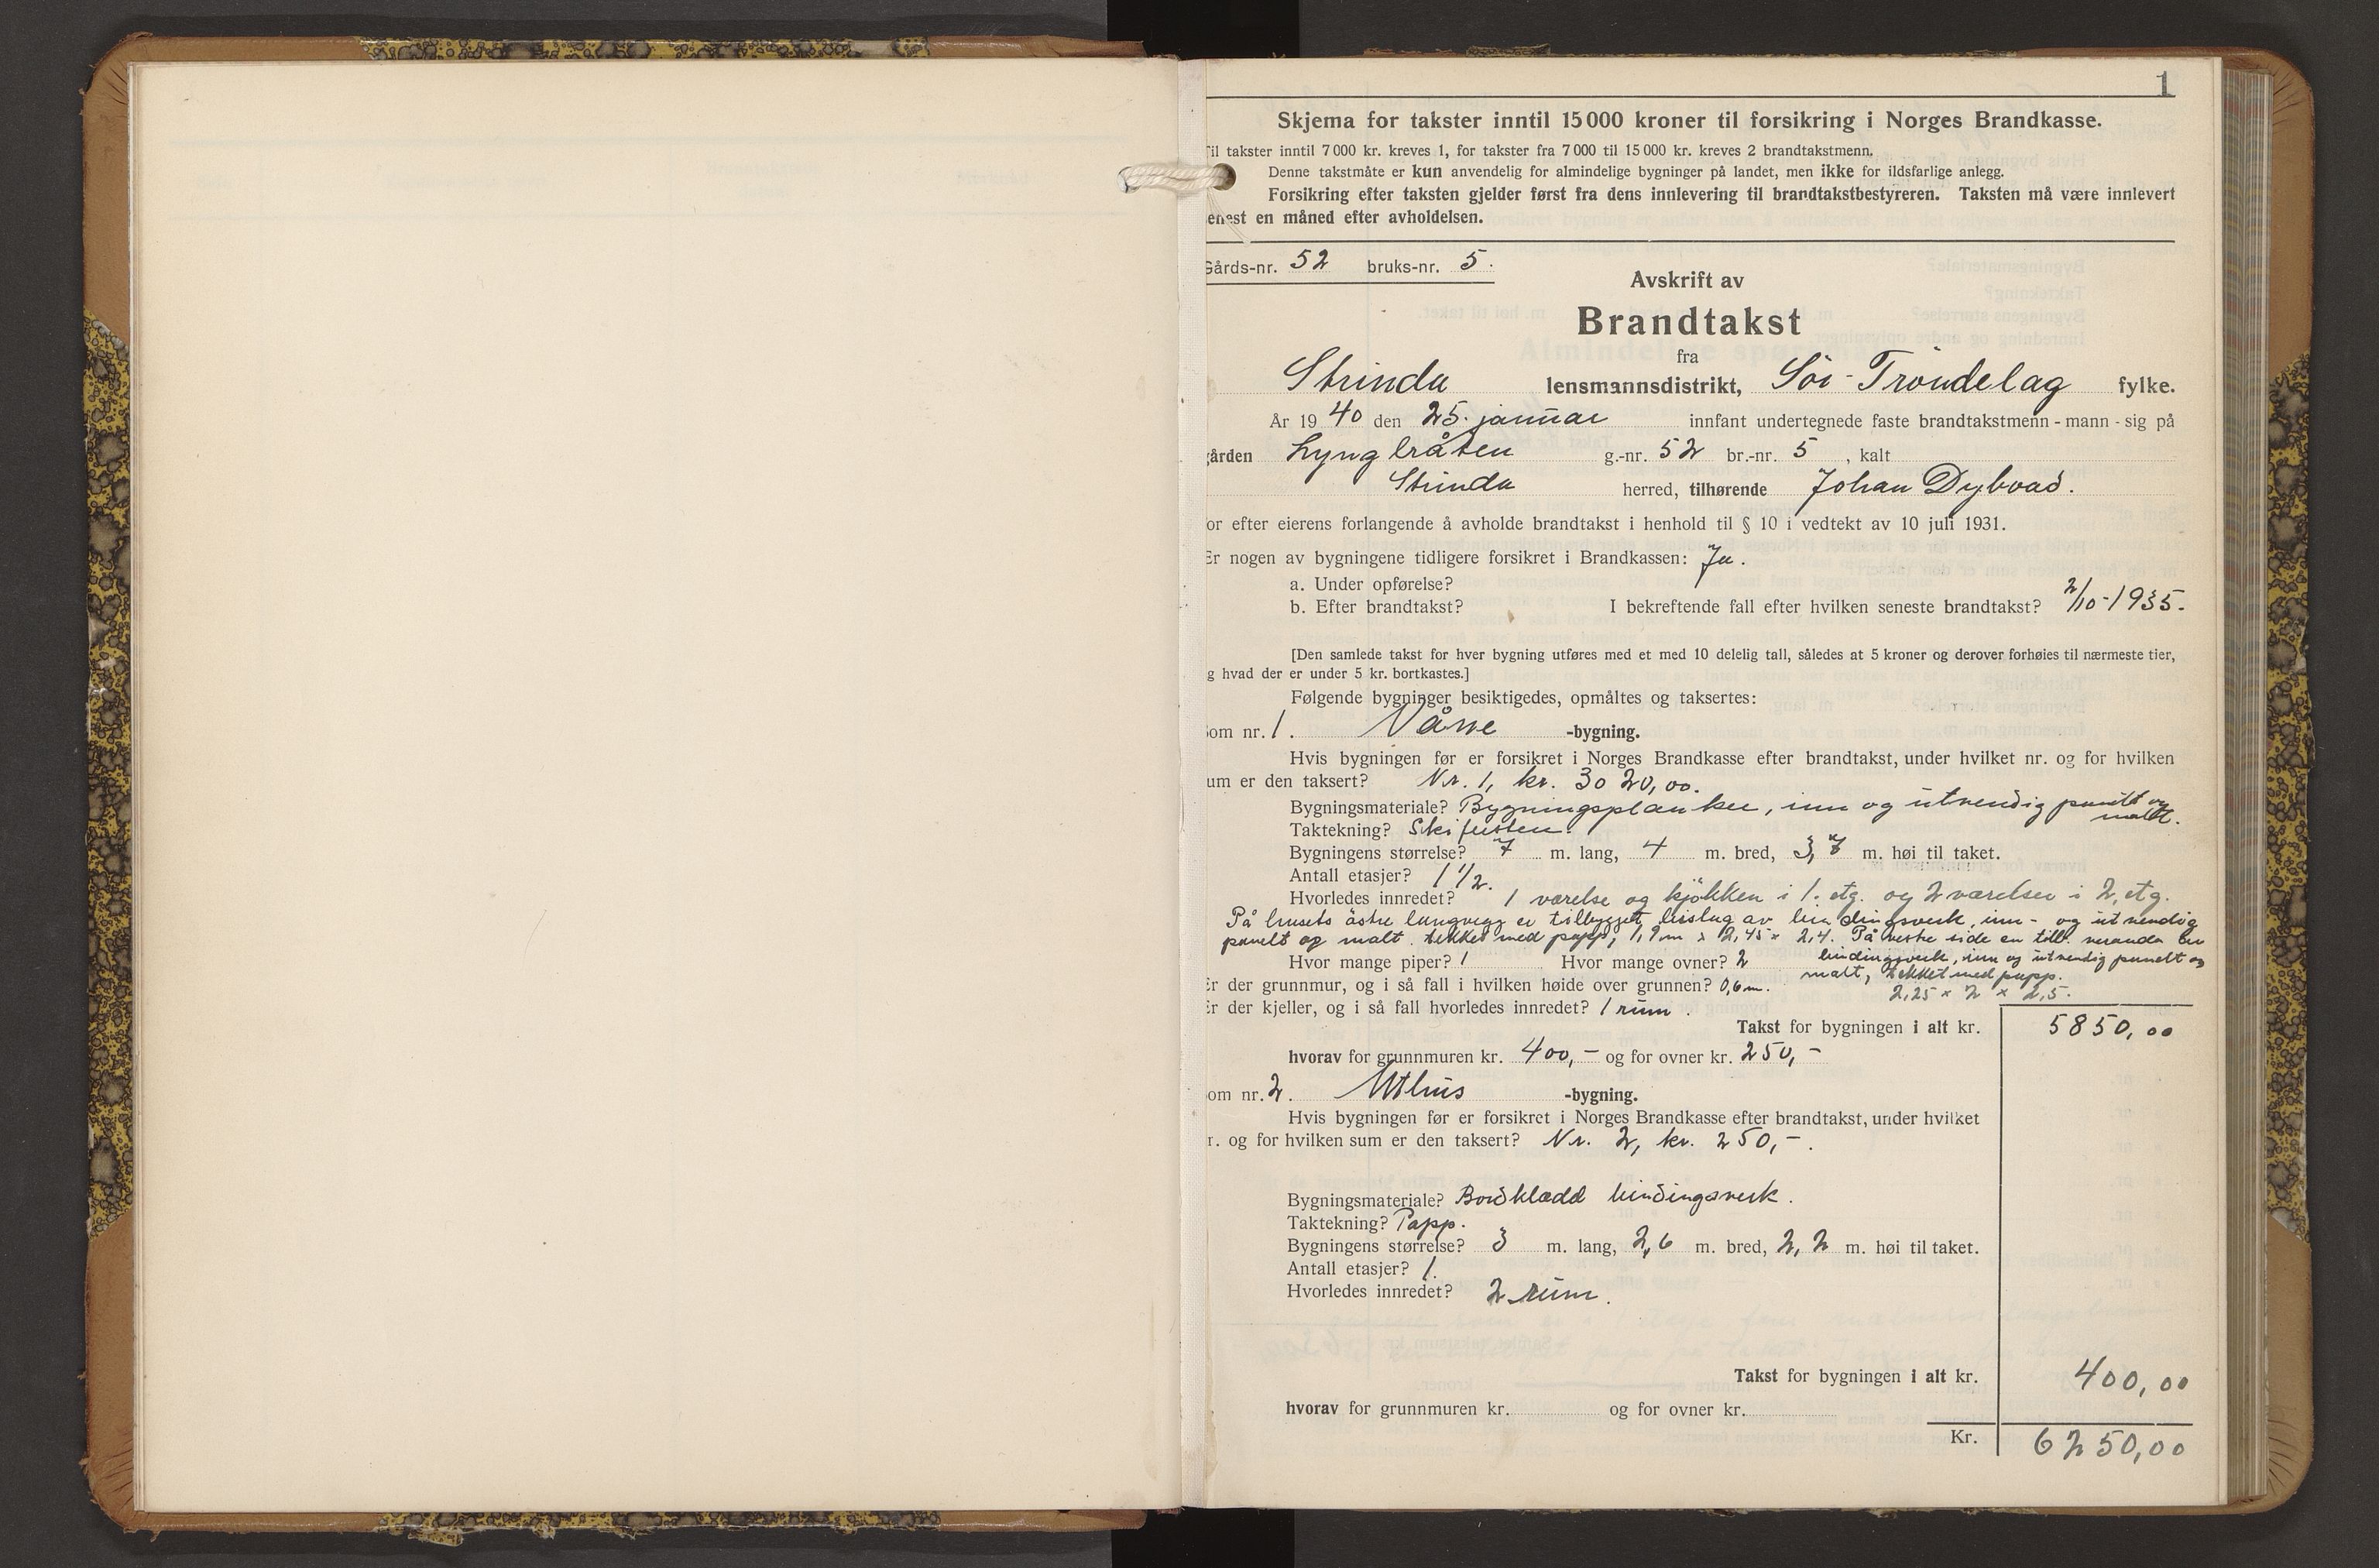 1
Skjema for takster inntil 15 000 kroner til forsikring i Norges Brandkasse.
Til takster inntil 7 000 kr. kreves 1, for takster fra 7 000 til 15 000 kr. kreves 2 brandtakstmenn.
Denne takstmåte er kun anvendelig for almindelige bygninger på landet, men ikke for ildsfarlige anlegg.
Forsikring efter taksten gjelder først fra dens innlevering til brandtakstbestyreren. Taksten må være innlevert
enest en måned efter avholdelsen.
Gårds-nr. 52 bruks-nr. 5.
Avskrift av
Brandtakst
fra
Strinda lensmannsdistrikt, Sör-Tröndelag fylke.
År 19 40 den 25. januar innfant undertegnede faste brandtakstmenn - mann - sig på
gården Lyngbråten g.-nr. 52 br.-nr. 5, kalt
Strinda herred, tilhørende Johan Dybvad.
or efter eierens forlangende å avholde brandtakst i henhold til § 10 i vedtekt av 10 juli 1931.
Er nogen av bygningene tidligere forsikret i Brandkassen: Ja.
a. Under opførelse?
b. Efter brandtakst? I bekreftende fall efter hvilken seneste brandtakst? 2/10-1935.
[Den samlede takst for hver bygning utføres med et med 10 delelig tall, således at 5 kroner og derover forhøies til nærmeste tier,
g hvad der er under 5 kr. bortkastes.]
Følgende bygninger besiktigedes, opmåltes og taksertes:
Som nr. 1. Våne -bygning.
Hvis bygningen før er forsikret i Norges Brandkasse efter brandtakst, under hvilket nr. og for hvilken
um er den taksert? Nr. 1, kr. 3020,00.
Bygningsmateriale? Bygningsplanker, inn og utvendig panelt og
malt.
Taktekning? Skifersten.
Bygningens størrelse? 7 m. lang, 4 m. bred, 3,7 m. høi til taket.
Antall etasjer? 1 1/2.
Hvorledes innredet? 1 værelse og kjökken i 1. etg. og 2 værelser i 2. etg.
På husets östre langvegg er tilbygget bislag av bindingsverk, inn- og utvendig
panelt og malt. tekket med papp, 1,9 m x 2,45 x 2,4. På vestre side en tilb. veranda av
bindingsverk, inn og utvendig panelt og
malt, tekket med papp.
2,25 x 2 x 2,5.
Hvor mange piper? 1 Hvor mange ovner? 2
Er der grunnmur, og i så fall i hvilken høide over grunnen? 0,6 m.
Er der kjeller, og i så fall hvorledes innredet? 1 rum.
Takst for bygningen i alt kr. 5850,00
hvorav for grunnmuren kr. 400,- og for ovner kr. 250,-
om nr. 2. Uthus -bygning.
Hvis bygningen før er forsikret i Norges Brandkasse efter brandtakst, under hvilket
r. og for hvilken sum er den taksert? Nr. 2, kr. 250,-.
Bygningsmateriale? Bordklædd bindingsverk.
Taktekning? Papp.
Bygningens størrelse? 3 m. lang, 2,6 m. bred, 2,2 m. høi til taket.
Antall etasjer? 1.
Hvorledes innredet? 2 rum.
Takst for bygningen i alt kr. 400,00
hvorav for grunnmuren kr. og for ovner kr.
Kr. 6250,00